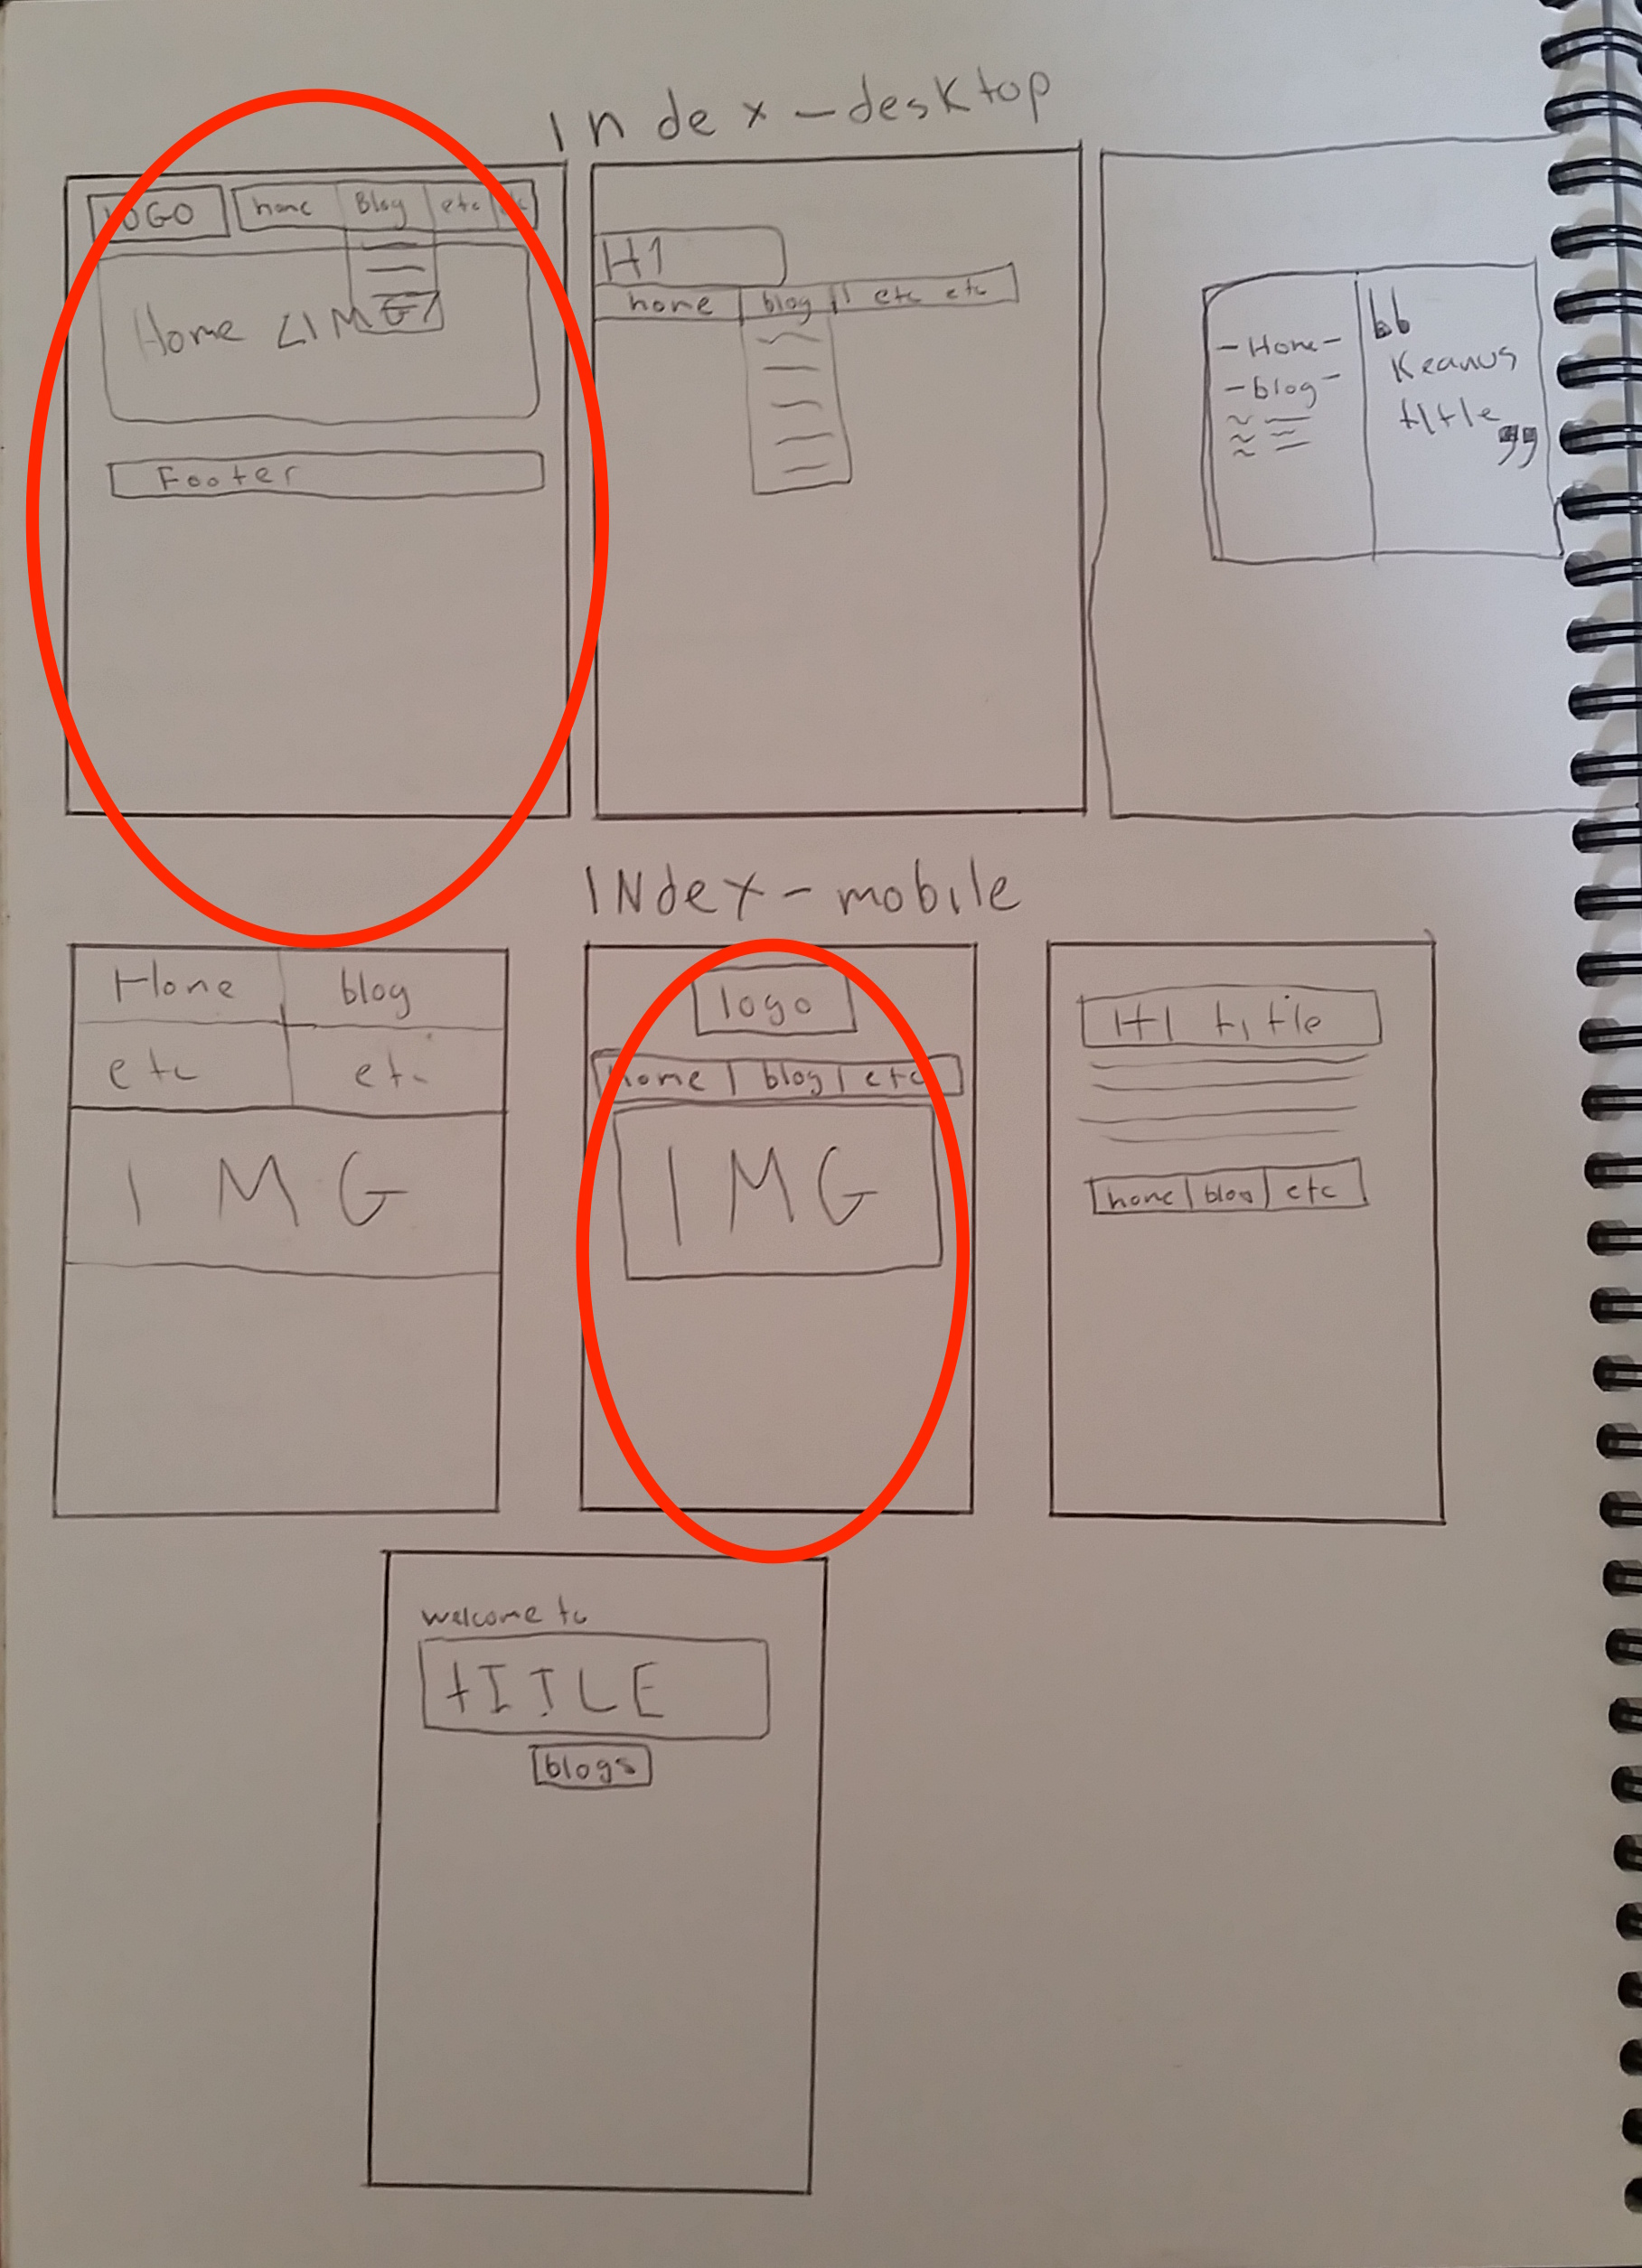 Index-desktop
LOGO home Blog etc
Home <IMG>
Footer
H1
home blog etc etc
-Home-
-blog-
Keanus
tItle
INdex-mobile
Home blog
etc etc
IMG
logo
home blog etc
IMG
H1 title
home blog etc
welcome to
tITLE
blogs